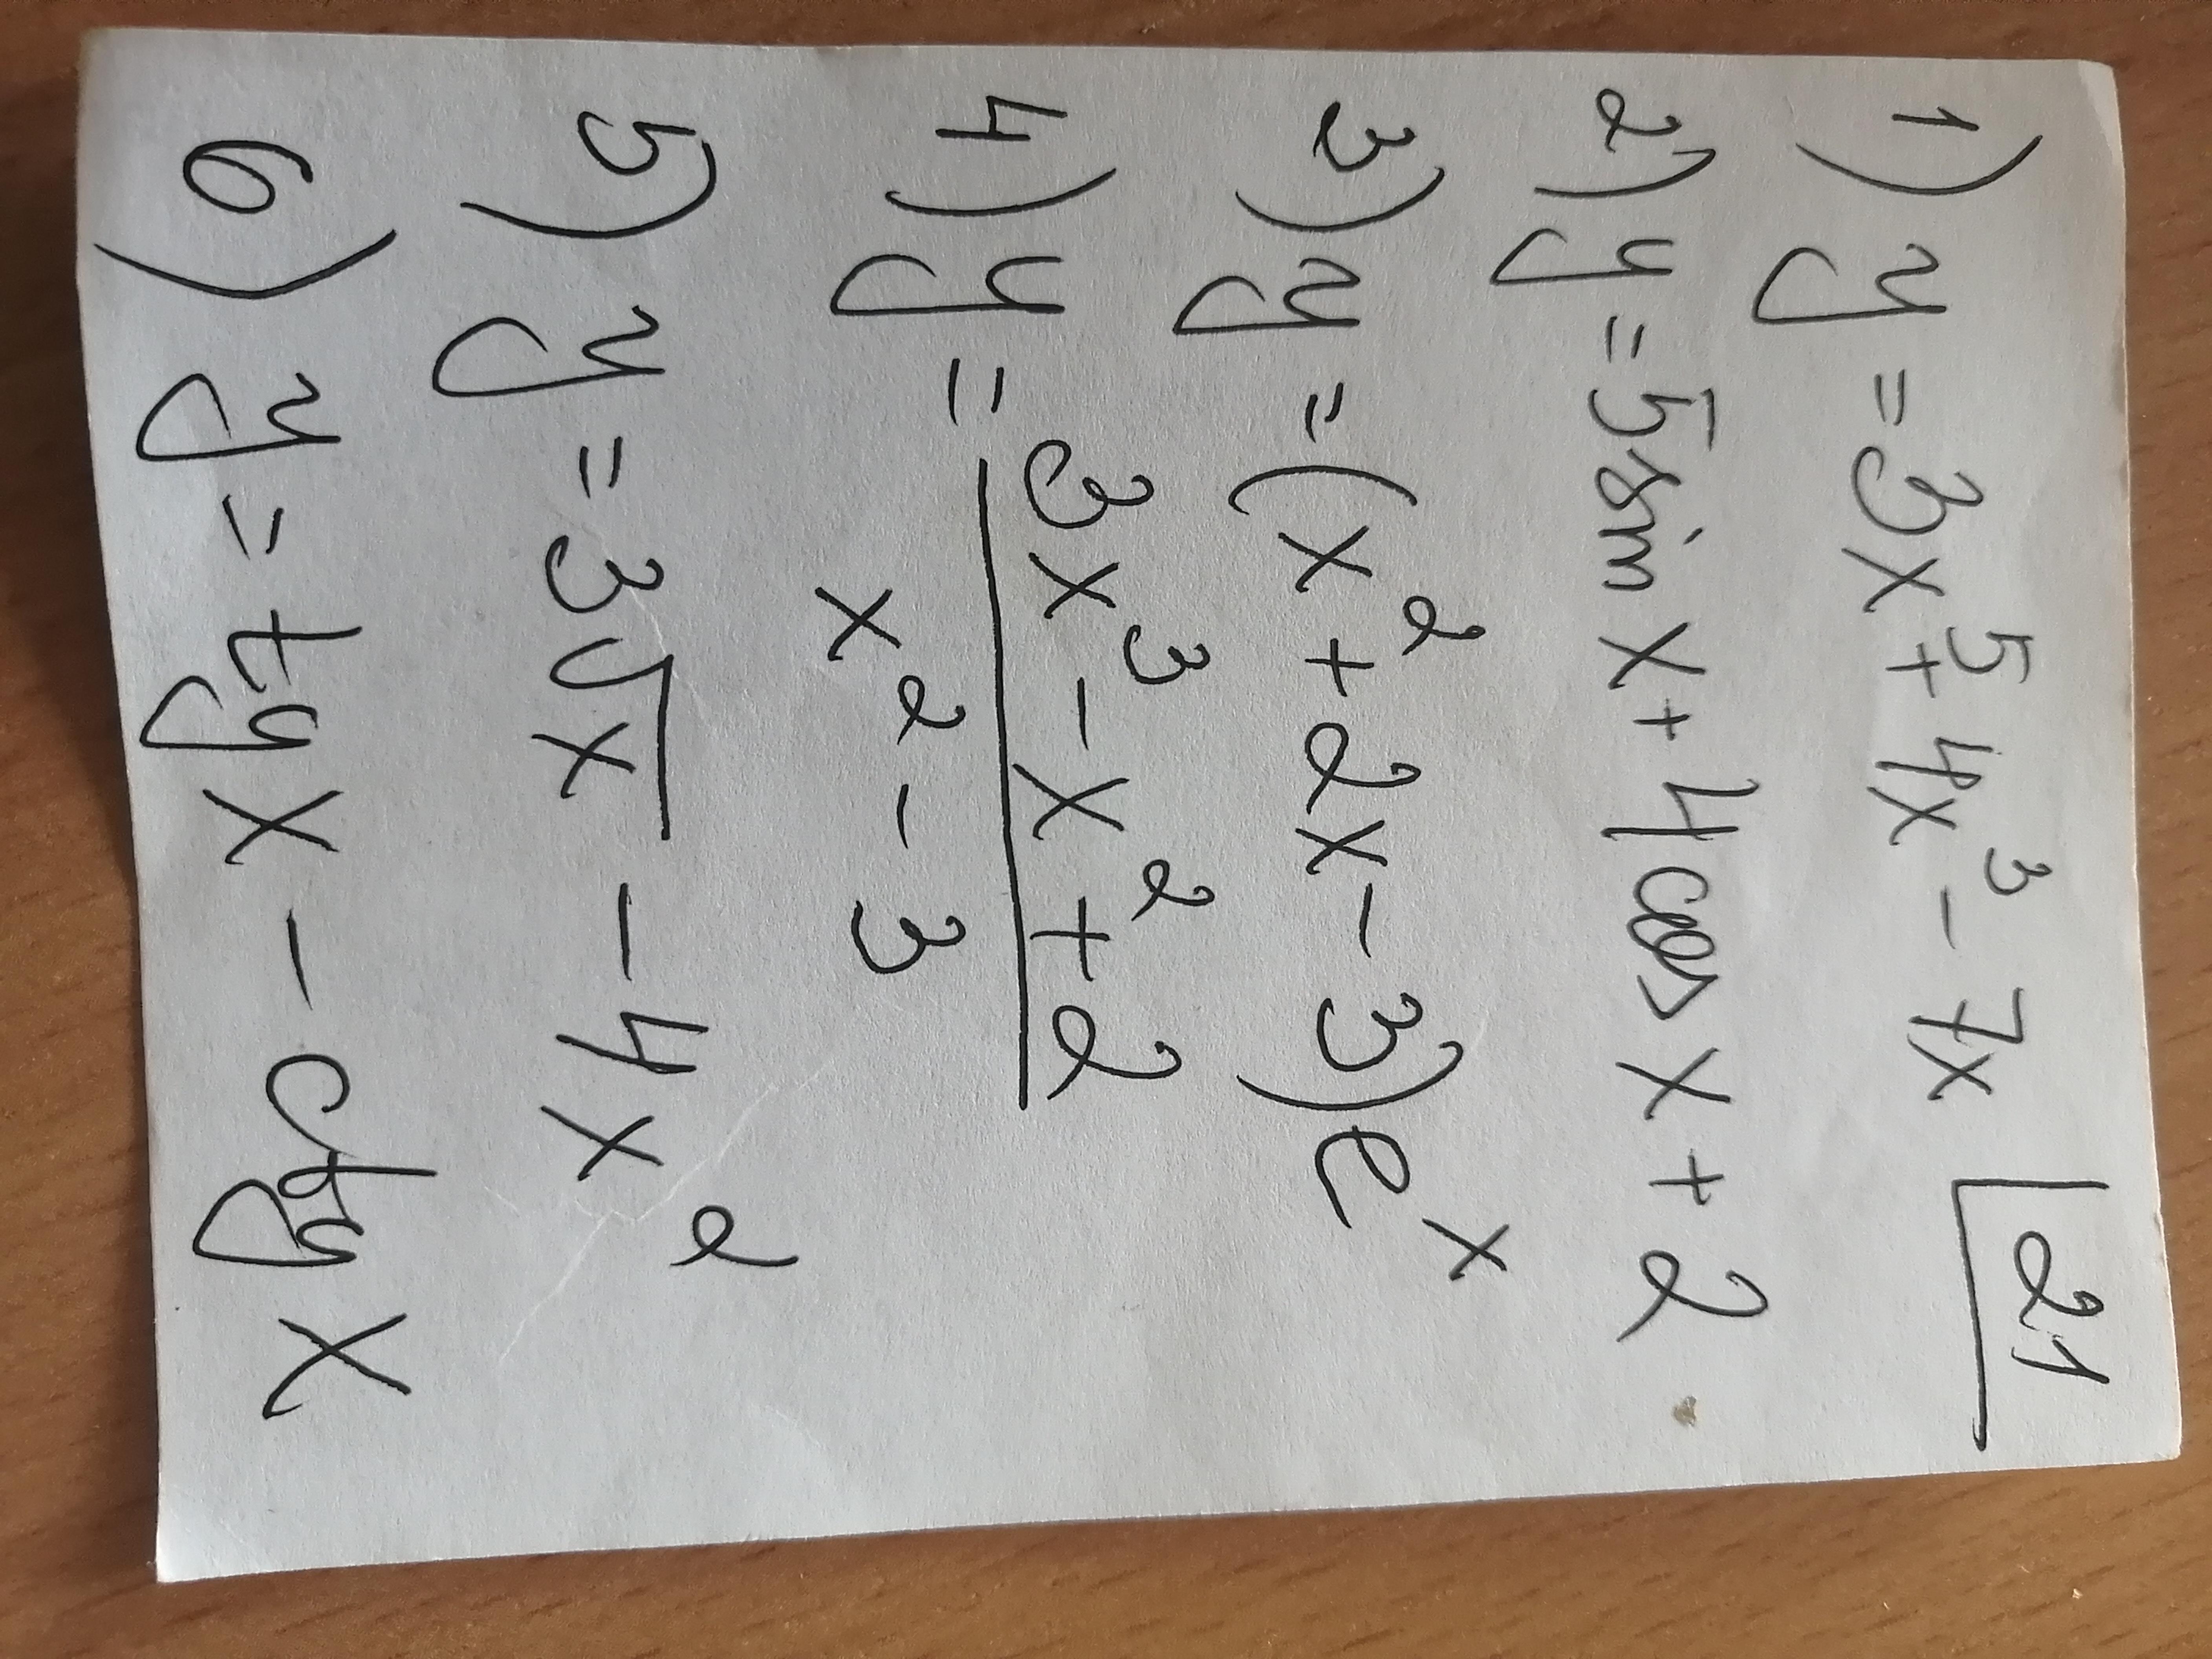 21
1) y = 3x⁵ + 4x³ - 7x
2) y = 5 sin x + 4 cos x + 2
3) y = (x² + 2x - 3)eˣ
4) y = (3x³ - x² + 2)/(x² - 3)
5) y = 3√x - 4x²
6) y = tg x - ctg x